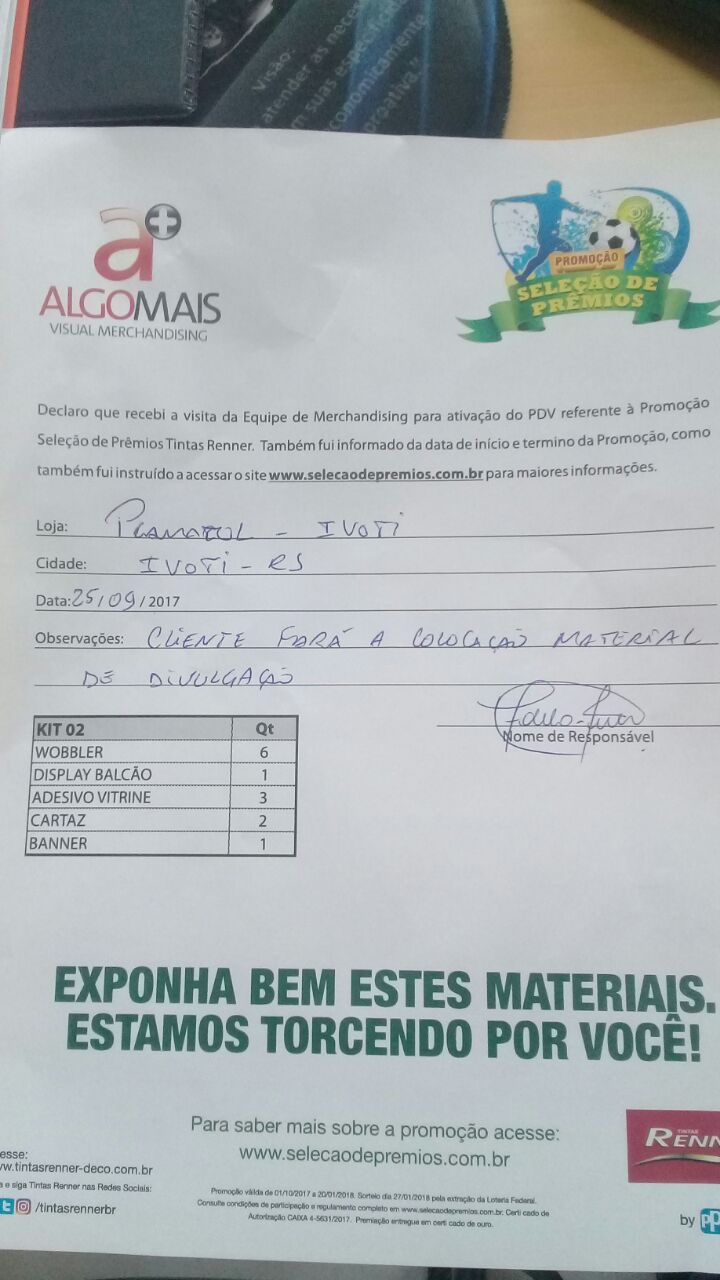 Visão:
atender as neces
m suas especific
conomicamente
proativa."
a+
ALGOMAIS
VISUAL MERCHANDISING
PROMOÇÃO
SELEÇÃO DE
PRÊMIOS
Declaro que recebi a visita da Equipe de Merchandising para ativação do PDV referente à Promoção
Seleção de Prêmios Tintas Renner. Também fui informado da data de início e termino da Promoção, como
também fui instruído a acessar o site www.selecaodepremios.com.br para maiores informações.
Loja: - IVOTI
Cidade: IVOTI - RS
Data: 25/09/2017
Observações: CLIENTE FARÁ A COLOCAÇÃO MATERIAL
DE DIVULGAÇÃO
Nome de Responsável
KIT 02 Qt
WOBBLER 6
DISPLAY BALCÃO 1
ADESIVO VITRINE 3
CARTAZ 2
BANNER 1
EXPONHA BEM ESTES MATERIAIS.
ESTAMOS TORCENDO POR VOCÊ!
Para saber mais sobre a promoção acesse:
www.selecaodepremios.com.br
TINTAS
RENN
esse:
w.tintasrenner-deco.com.br
a e siga Tintas Renner nas Redes Sociais:
/tintasrennerbr
Promoção válida de 01/10/2017 a 20/01/2018. Sorteio dia 27/01/2018 pela extração da Loteria Federal.
Consulte condições de participação e regulamento completo em www.selecaodepremios.com.br. Certi cado de
Autorização CAIXA 4-5631/2017. Premiação entregue em certi cado de ouro.
by pp